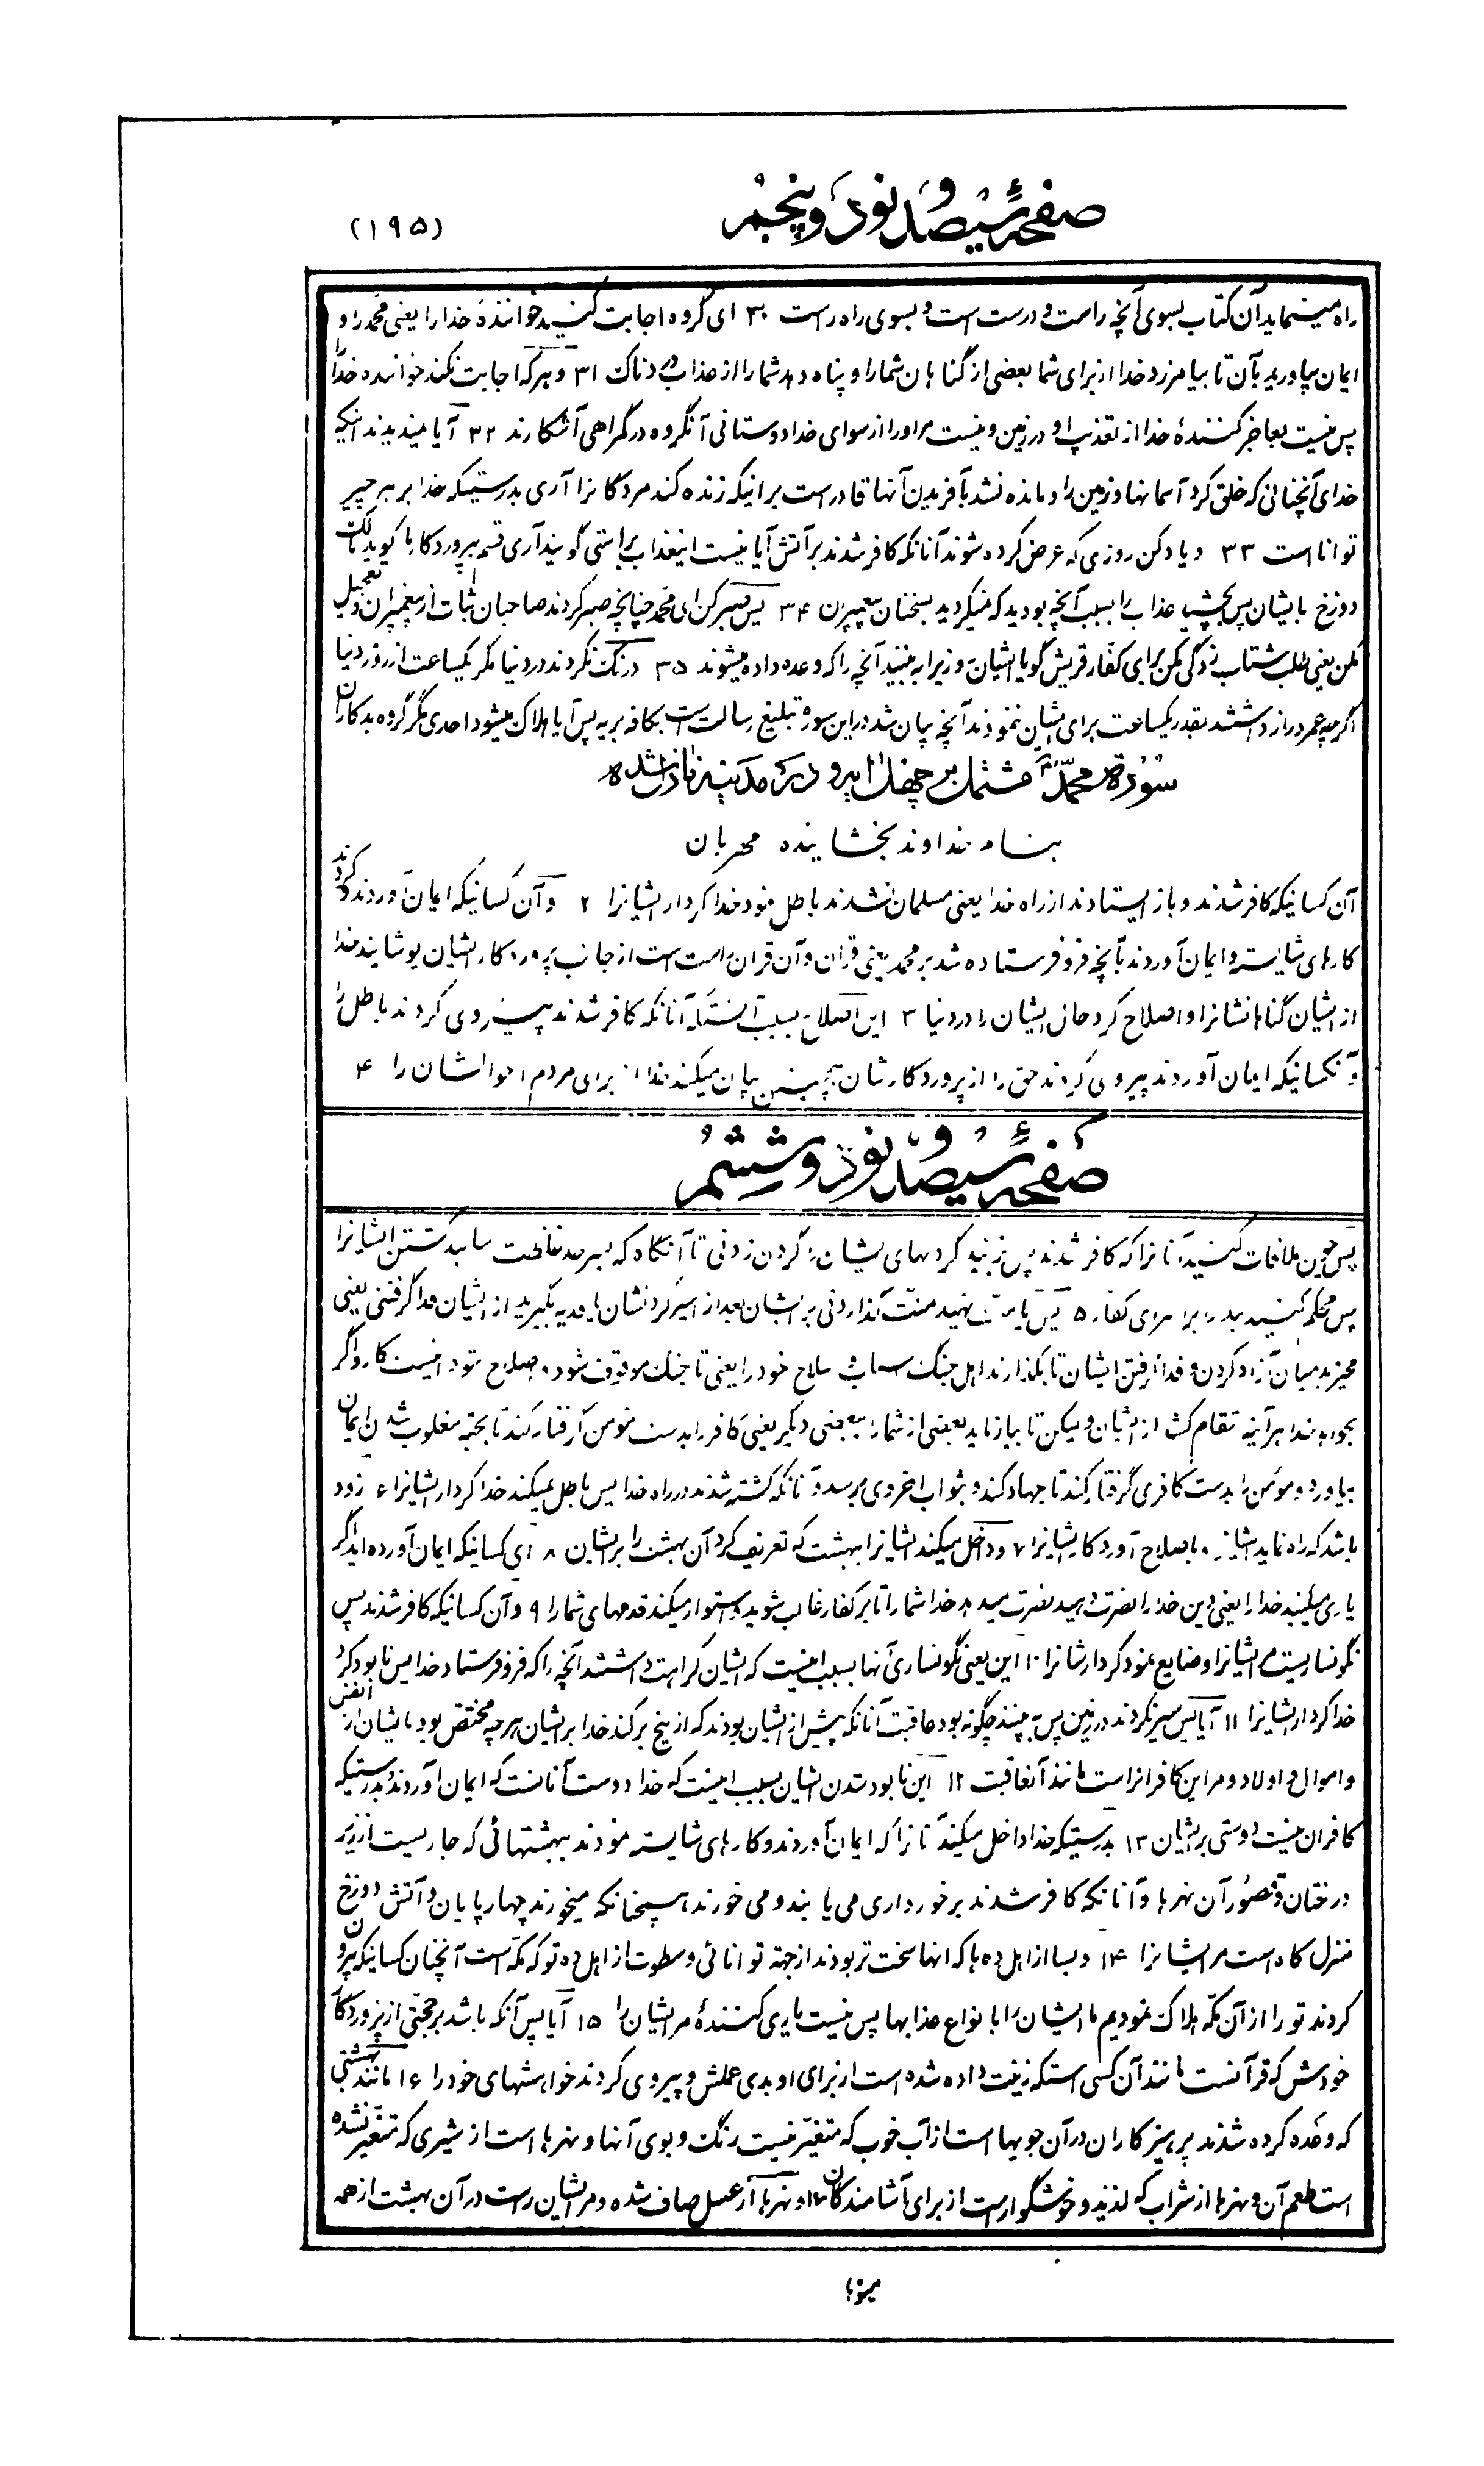 صفحهٔ سیصد و نود و پنجم
(۱۹۵)
راه مینماید آن کتاب بسوی آنچه راست و درست است و بسوی راه راست ۳۰ ای گروه اجابت کنید خوانندهٔ خدا را یعنی محمد را و
ایمان بیاورید بآن تا بیامرزد خدا از برای شما بعضی از گناهان شما را و پناه دهد شما را از عذاب دردناک ۳۱ و هرکه اجابت نکند خواننده خدا را
پس نیست بعاجز کنندهٔ خدا از تعذیب او در زمین و نیست مر او را از سوای خدا دوستانی آنگروه در گمراهی آشکارند ۳۲ آیا ندیدند اینکه
خدای آنچنانی که خلق کرد آسمانها و زمین را و مانده نشد بآفریدن آنها قادر است بر اینکه زنده کند مردگانرا آری بدرستیکه خدا بر هر چیز
توانا است ۳۳ و یاد کن روزی که عرض کرده شوند آنانکه کافر شدند بر آتش آیا نیست اینعذاب براستی گویند آری قسم بپروردگار ما گوید مالک
دوزخ بایشان پس بچشید عذاب را بسبب آنچه بودید که نمیگردید بسخنان پیغمبران ۳۴ پس صبر کن ای محمد چنانچه صبر کردند صاحبان ثبات از پیغمبران و تعجیل
مکن یعنی طلب شتاب زدگی مکن برای کفار قریش گویا ایشان روزیرا به بینید آنچه را که وعده داده میشوند ۳۵ درنگ نکردند در دنیا مگر یکساعت از روز دنیا
اگر چه عمر دراز داشتند بقدر یکساعت برای ایشان ننمودند آنچه بیان شد در این سوره تبلیغ رسالت است بکافه بریه پس آیا هلاک میشود احدی مگر گروه بدکاران
سورة محمد مشتمل بر چهل ایه و در مدینه نازل شده
بنام خداوند بخشاینده مهربان
آن کسانیکه کافر شدند و باز ایستادند از راه خدا یعنی مسلمان نشدند باطل نمود خدا کردار ایشانرا ۲ و آن کسانیکه ایمان آوردند و کردند
کارهای شایسته و ایمان آوردند بآنچه فرو فرستاده شد بر محمد یعنی قران و آن قران راست است از جانب پروردگار ایشان پوشانید خدا
از ایشان گناهانشانرا و اصلاح کرد حال ایشان را در دنیا ۳ این اصلاح بسبب آنستکه آنانکه کافر شدند پیروی کردند باطل را
و آنکسانیکه ایمان آوردند پیروی کردند حق را از پروردگارشان همچنین بیان میکند خدا از برای مردم احوالشان را ۴
صفحهٔ سیصد و نود و ششم
پس چون ملاقات کنید آنانرا که کافر شدند پس بزنید گردنهای ایشان را گردن زدنی تا آنگاه که بسرحد رسانید کشتن ایشانرا
پس محکم کنید بند را برای کفار ۵ پس یا منت نهید منت گذاردنی بر ایشان بعد از اسیر کردنشان یا فدیه بگیرید از ایشان فدا گرفتنی یعنی
مخیرید میان آزاد کردن و فدا گرفتن ایشان تا بگذارند اهل جنگ اسباب و سلاح خود را یعنی تا جنگ موقوف شود و صلاح شود اینست کار و اگر
بخواهد خدا هر آینه انتقام کشد از ایشان و لیکن تا بیازماید بعضی از شما را ببعضی دیگر یعنی کافر را بدست مؤمن گرفتار کند تا بجهة مغلوب شدن ایمان
بیاورد و مؤمن را بدست کافری گرفتار کند تا جهاد کند و بثواب اخروی برسد و آنانکه کشته شدند در راه خدا پس باطل نمیکند خدا کردار ایشانرا ۶ زود
باشد که راه نماید ایشانرا و باصلاح آورد کار ایشانرا ۷ و داخل میکند ایشانرا ببهشت که تعریف کرد آن بهشت را بر ایشان ۸ ای کسانیکه ایمان آورده‌اید اگر
یاری میکنید خدا را یعنی دین خدا را نصرت دهید نصرت میدهد خدا شما را تا بر کفار غالب شوید و استوار میکند قدمهای شما را ۹ و آن کسانیکه کافر شدند پس
نگونساریست مر ایشانرا و ضایع نمود کردارشانرا ۱۰ این یعنی نگونساری آنها بسبب اینست که ایشان کراهت داشتند آنچه را که فرو فرستاد خدا پس نابود کرد
خدا کردار ایشانرا ۱۱ آیا پس سیر نکردند در زمین پس به بینند چگونه بود عاقبت آنانکه پیش از ایشان بودند که از بیخ برکند خدا بر ایشان هر چه مختص بود بایشان از انفس
و اموال و اولاد و مر این کافرانراست مانند آنعاقبت ۱۲ این نابود شدن ایشان بسبب اینست که خدا دوست آنانست که ایمان آوردند و بدرستیکه
کافران نیست دوستی بر ایشان ۱۳ بدرستیکه خدا داخل میکند آنانرا که ایمان آوردند و کارهای شایسته نمودند ببهشتهائی که جاریست از زیر
درختان و قصور آن نهرها و آنانکه کافر شدند برخورداری می یابند و می خورند همچنانکه میخورند چهارپایان و آتش دوزخ
منزل گاه است مر ایشانرا ۱۴ و بسا از اهل ده ها که انها سخت تر بودند از جهة توانائی و سطوت از اهل ده تو که مکه است آنچنان کسانیکه بیرون
کردند تو را از آن مکه هلاک نمودیم ما ایشان را بانواع عذابها پس نیست یاری کنندهٔ مر ایشان را ۱۵ آیا پس آنکه باشد بر حجتی از پروردگار
خودش که قرآنست مانند آن کسی استکه زینت داده شده است از برای او بدی عملش و پیروی کردند خواهشهای خود را ۱۶ مانند بهشتی
که وعده کرده شدند پرهیزکاران در آن جویها است از آب خوب که متغیر نیست رنگ و بوی آنها و نهرها است از شیری که متغیر نشده
است طعم آن و نهرها از شراب که لذیذ و خوشگوار است از برای آشامندگان ۱۷ و نهرها از عسل صاف شده و مر ایشان راست در آن بهشت از همه